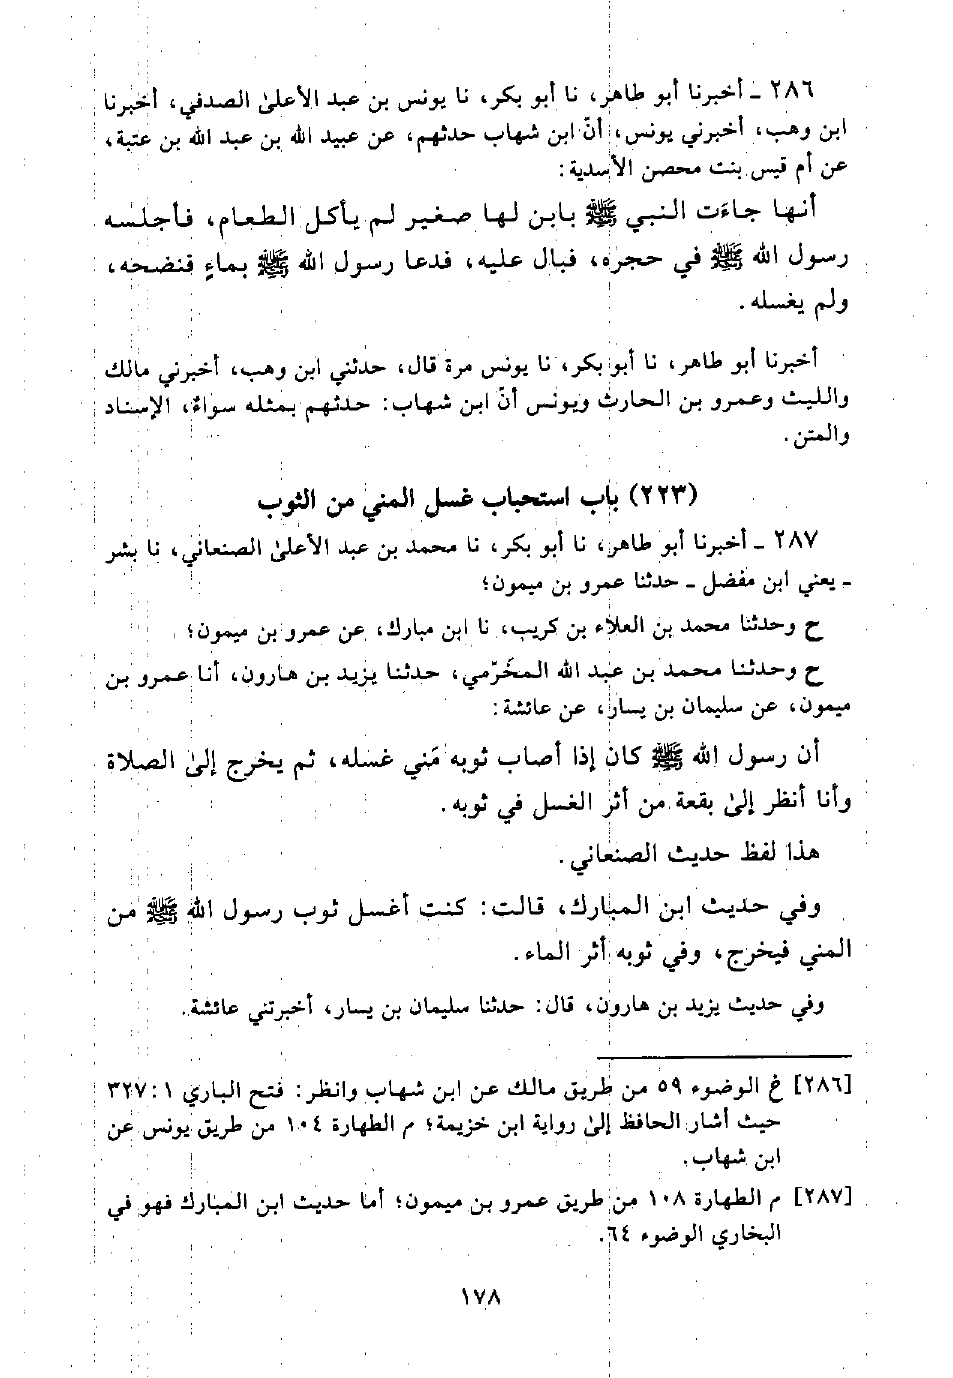 ٢٨٦ ـ أخبرنا أبو طاهر، نا أبو بكر، نا يونس بن عبد الأعلىٰ الصدفي، أخبرنا
ابن وهب، أخبرني يونس، أنّ ابن شهاب حدثهم، عن عبيد الله بن عبد الله بن عتبة،
عن أم قيس بنت محصن الأسدية:
أنها جاءَت النبي ﷺ بابن لها صغير لم يأكل الطعام، فأجلسه
رسول الله ﷺ في حجره، فبال عليه، فدعا رسول الله ﷺ بماءٍ فنضحه،
ولم يغسله.
أخبرنا أبو طاهر، نا أبو بكر، نا يونس مرة قال، حدثني ابن وهب، أخبرني مالك
والليث وعمرو بن الحارث ويونس أنّ ابن شهاب: حدثهم بمثله سواءً، الإسناد
والمتن.
(٢٢٣) باب استحباب غسل المني من الثوب
٢٨٧ ـ أخبرنا أبو طاهر، نا أبو بكر، نا محمد بن عبد الأعلىٰ الصنعاني، نا بشر
ـ يعني ابن مفضل ـ حدثنا عمرو بن ميمون؛
ح وحدثنا محمد بن العلاء بن كريب، نا ابن مبارك، عن عمرو بن ميمون؛
ح وحدثنا محمد بن عبد الله المخَرّمي، حدثنا يزيد بن هارون، أنا عمرو بن
ميمون، عن سليمان بن يسار، عن عائشة:
أن رسول الله ﷺ كان إذا أصاب ثوبه مَني غسله، ثم يخرج إلىٰ الصلاة
وأنا أنظر إلىٰ بقعة من أثر الغسل في ثوبه.
هذا لفظ حديث الصنعاني.
وفي حديث ابن المبارك، قالت: كنت أغسل ثوب رسول الله ﷺ من
المني فيخرج، وفي ثوبه أثر الماء.
وفي حديث يزيد بن هارون، قال: حدثنا سليمان بن يسار، أخبرتني عائشة.
[٢٨٦] خ الوضوء ٥٩ من طريق مالك عن ابن شهاب وانظر: فتح الباري ١: ٣٢٧
حيث أشار الحافظ إلىٰ رواية ابن خزيمة؛ م الطهارة ١٠٤ من طريق يونس عن
ابن شهاب.
[٢٨٧] م الطهارة ١٠٨ من طريق عمرو بن ميمون؛ أما حديث ابن المبارك فهو في
البخاري الوضوء ٦٤.
١٧٨